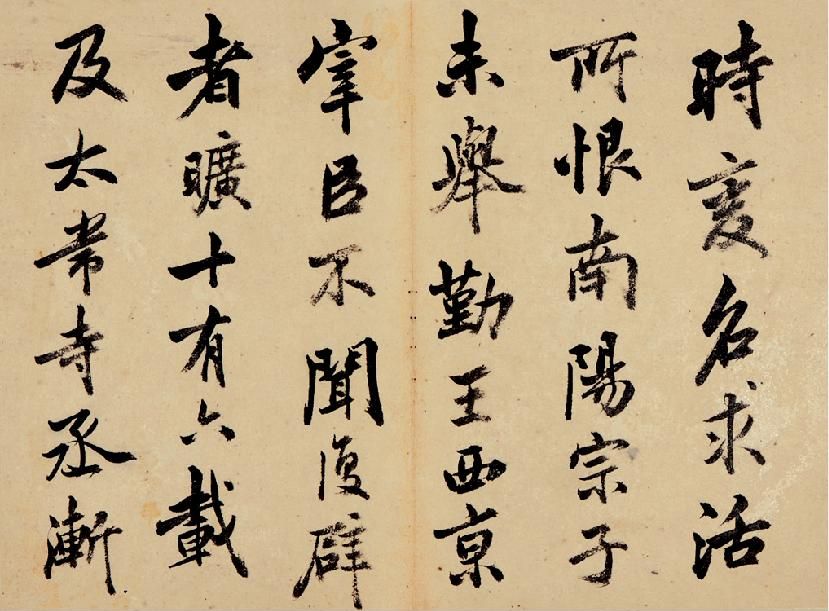 時变名求活
所恨南陽宗子
未舉勤王西京
宰臣不聞復辟
者曠十有六載
及太常寺丞漸